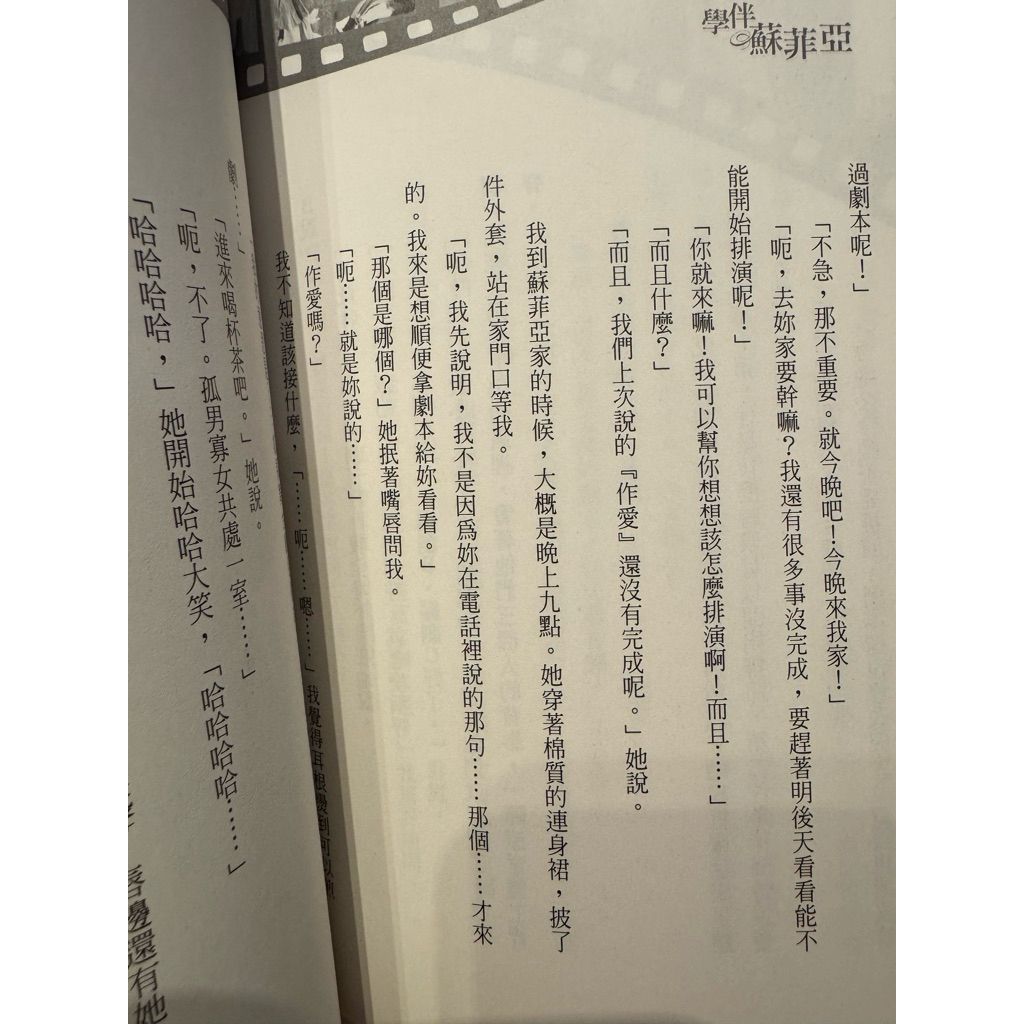 學伴蘇菲亞
過劇本呢！」
「不急，那不重要。就今晚吧！今晚來我家！」
「呃，去妳家要幹嘛？我還有很多事沒完成，要趕著明後天看看能不
能開始排演呢！」
「你就來嘛！我可以幫你想想該怎麼排演啊！而且……」
「而且什麼？」
「而且，我們上次說的『作愛』還沒有完成呢。」她說。
我到蘇菲亞家的時候，大概是晚上九點。她穿著棉質的連身裙，披了
件外套，站在家門口等我。
「呃，我先說明，我不是因為妳在電話裡說的那句……那個……才來
的。我來是想順便拿劇本給妳看看。」
「那個是哪個？」她抿著嘴唇問我。
「呃……就是妳說的……」
「作愛嗎？」
我不知道該接什麼，「……呃……嗯……」我覺得耳根燙到可以
劇……」
「進來喝杯茶吧。」她說。
「呃，不了。孤男寡女共處一室……」
「哈哈哈哈，」她開始哈哈大笑，「哈哈哈哈……」
唇邊還有她